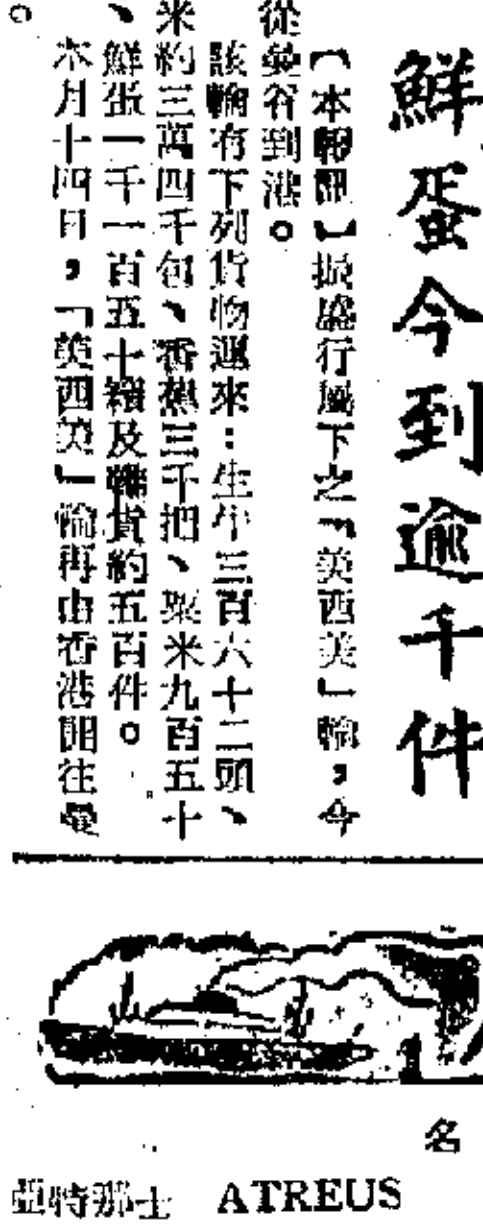 鮮蛋今到逾千件
【本報訊】振盛行屬下之「美西美」輪，今
從曼谷到港。
該輪有下列貨物運來：生牛三百六十二頭、
米約三萬四千包、香蕉三千把、粟米九百五十
、鮮蛋一千一百五十籮及雜貨約五百件。
本月十四日，「美西美」輪再由香港開往曼
。
名
亞特那士 ATREUS